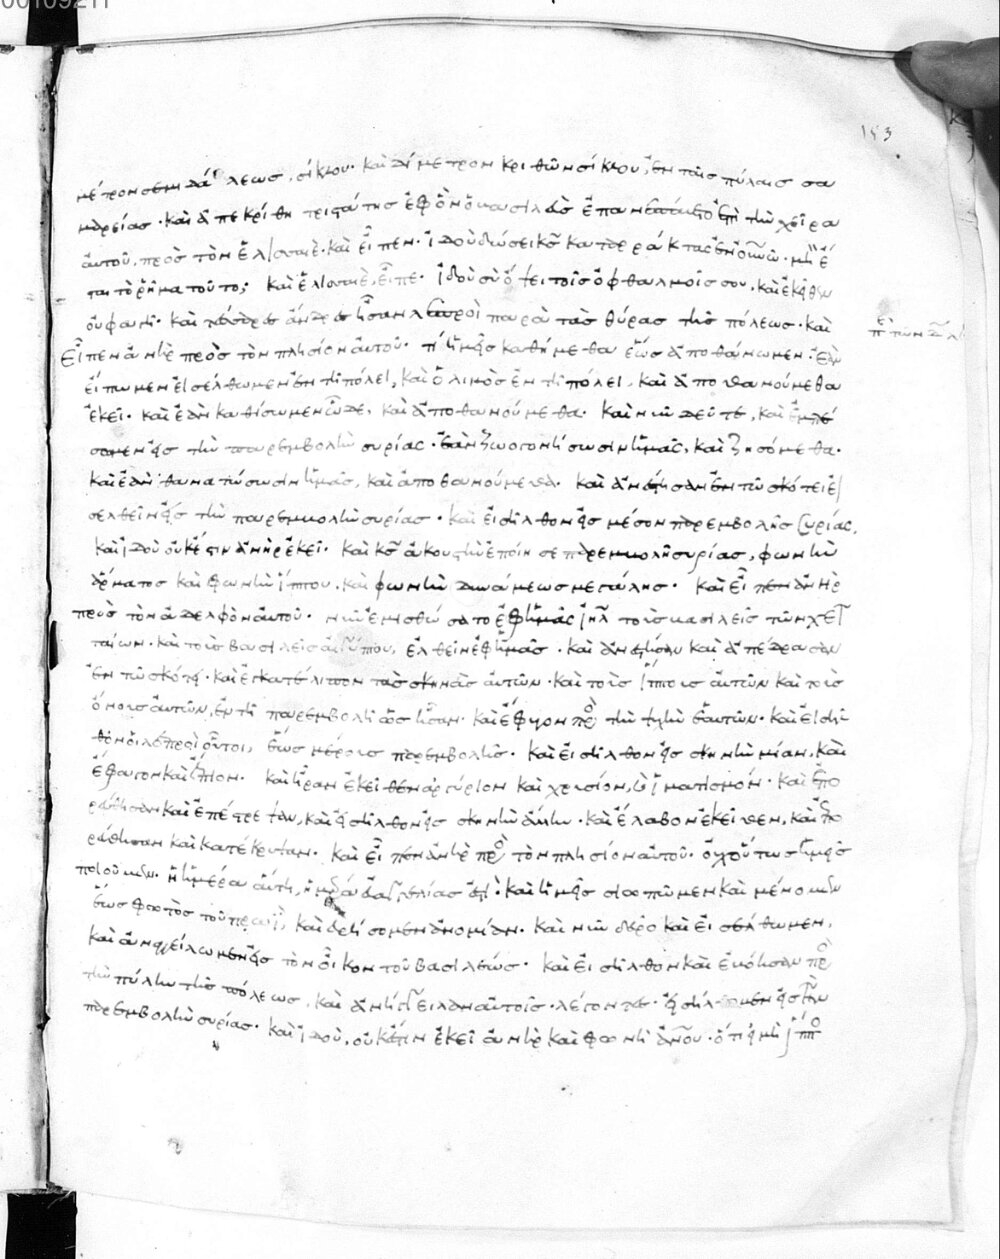 00109211
153
μέτρον σεμιδάλεως, σίκλου· καὶ δίμετρον κριθῶν σίκλου, ἐν ταῖς πύλαις σα
μαρείας· καὶ ἀπεκρίθη τριστάτης ἐφ ὃν ὁ βασιλεὺς ἐπανεπαύετο ἐπὶ τὴν χεῖρα
αὐτοῦ, πρὸς τὸν ἐλισσαιὲ· καὶ εἶπεν· ἰδοὺ δώσει κς καταρράκτας ἐν οὐνῶ· μὴ ἔ
σται τὸ ῥῆμα τοῦτο; καὶ ἐλισσαιὲ, εἶπε· ἰδοὺ σὺ ὄψει τοῖς ὀφθαλμοῖς σου, καὶ ἐκεῖθεν
οὐ φάγῃ· καὶ τέσσαρες ἄνδρες ἦσαν λεπροὶ παρὰ τὰς θύρας τῆς πόλεως· καὶ
εἶπεν ἀνὴρ πρὸς τὸν πλησίον αὐτοῦ· τί ἡμεῖς καθήμεθα ἕως ἀποθάνωμεν· ἐὰν
εἴπωμεν εἰσέλθωμεν ἐν τῇ πόλει, καὶ ὁ λιμὸς ἐν τῇ πόλει, καὶ ἀποθανούμεθα
ἐκεῖ· καὶ ἐὰν καθίσωμεν ὧδε, καὶ ἀποθανούμεθα· καὶ νῦν δεῦτε, καὶ ἐμπέ
σωμεν εἰς τὴν παρεμβολὴν συρίας· ἐὰν ζωογονήσωσιν ἡμᾶς, καὶ ζησόμεθα·
καὶ ἐὰν θανατώσωσιν ἡμᾶς, καὶ ἀποθανούμεθα· καὶ ἀνέστησαν ἐν τῶ σκότει εἰ
σελθεῖν εἰς τὴν παρεμβολὴν συρίας· καὶ εἰσῆλθον εἰς μέσον παρεμβολῆς συρίας,
καὶ ἰδοὺ οὐκ ἔστιν ἀνὴρ ἐκεῖ· καὶ κς ἀκουστὴν ἐποίησε παρεμβολὴν συρίας, φωνὴν
ἅρματος καὶ φωνὴν ἵππου, καὶ φωνὴν δυνάμεως μεγάλης· καὶ εἶπεν ἀνὴρ
πρὸς τὸν ἀδελφὸν αὐτοῦ· νῦν ἐμισθώσατο ἐφ ἡμᾶς ἰηλ τοὺς βασιλεῖς τῶν χετ
ταίων· καὶ τοὺς βασιλεῖς αἰγύπτου, ἐλθεῖν ἐφ ἡμᾶς· καὶ ἀνέστησαν καὶ ἀπέδρασαν
ἐν τῶ σκότει· καὶ ἐγκατέλιπον τὰς σκηνὰς αὐτῶν· καὶ τοὺς ἵππους αὐτῶν καὶ τοὺς
ὄνους αὐτῶν, ἐν τῇ παρεμβολῇ ὡς ἦσαν· καὶ ἔφυγον πρὸς τὴν ψυχὴν ἑαυτῶν· καὶ εἰσῆλ
θον οἱ λεπροὶ οὗτοι, ἕως μέρους παρεμβολῆς· καὶ εἰσῆλθον εἰς σκηνὴν μίαν, καὶ
ἔφαγον καὶ ἔπιον· καὶ ἦραν ἐκεῖθεν ἀργύριον καὶ χρυσίον, καὶ ἱματισμόν· καὶ ἐπο
ρεύθησαν καὶ ἐπέστρεψαν, καὶ εἰσῆλθον εἰς σκηνὴν ἄλλην· καὶ ἔλαβον ἐκεῖθεν, καὶ ἐπο
ρεύθησαν καὶ κατέκρυψαν· καὶ εἶπεν ἀνὴρ πρὸς τὸν πλησίον αὐτοῦ· οὐχ οὕτως ἡμεῖς
ποιοῦμεν· ἡ ἡμέρα αὕτη, ἡμέρα εὐαγγελίας ἐστί· καὶ ἡμεῖς σιωπῶμεν καὶ μένομεν
ἕως φωτὸς τοῦ πρωῒ, καὶ εὑρήσομεν ἀνομίαν· καὶ νῦν δεῦρο καὶ εἰσέλθωμεν,
καὶ ἀναγγείλωμεν εἰς τὸν οἶκον τοῦ βασιλέως· καὶ εἰσῆλθον καὶ ἐβόησαν πρὸς
τὴν πύλην τῆς πόλεως, καὶ ἀνήγγειλαν αὐτοῖς· λέγοντες· εἰσήλθομεν εἰς τὴν
παρεμβολὴν συρίας· καὶ ἰδοὺ, οὐκ ἔστιν ἐκεῖ ἀνὴρ καὶ φωνὴ ἀνου· ὅτι εἰ μὴ ἵππος